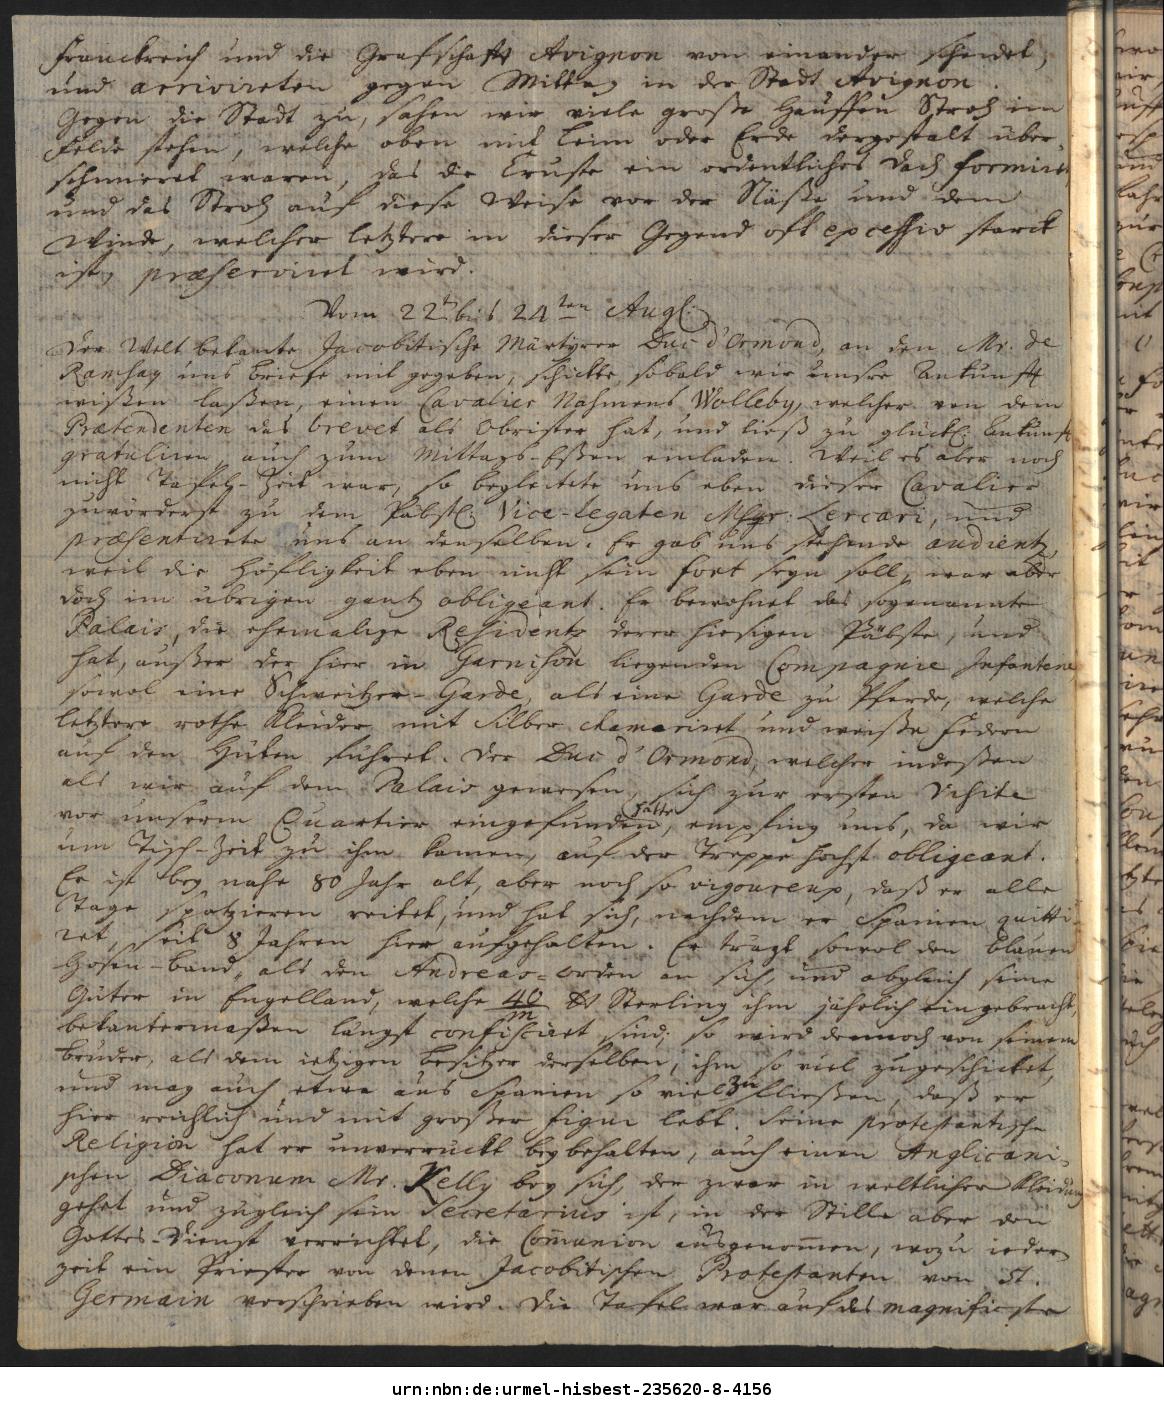 Franckreich und die Grafschafft Avignon von einander scheidet,
und arrivireten gegen Mittag in der Stadt Avignon.
Gegen die Stadt zu, sahen wir viele große Hauffen Stroh im
Felde stehen, welche oben mit Leim oder Erde dergestalt über¬
schmieret waren, das die Cruste ein ordentliches Dach formiret,
und das Stroh auf diese Weise vor der Näße und dem
Winde, welcher letztere in dieser Gegend oft excessiv starck
ist, præserviret wird.
Vom 22t bis 24ten Augl.
Der Welt bekante Jacobitische Märtyrer Duc d'Ormond, an den Mr. de
Ramsay uns briefe mit gegeben, schickte, sobald wir unsre Ankunfft
wißen laßen, einen Cavalier Nahmens Wolleby, welcher von dem
Prætendenten das brevet als Obrister hat, und ließ zu glückl. Ankunft
gratuliren, auch zum Mittags-Eßen einladen. Weil es aber noch
nicht Tafel-Zeit war, so begleitete uns eben dieser Cavalier
zuvörderst zu dem Päbstl. Vice-Legaten Msgr. Lercari, und
præsentirete uns an denselben. Er gab uns stehende audientz,
weil die Höfligkeit eben nicht sein fort seyn soll, war aber
doch im übrigen gantz obligeant. Er bewohnet das sogenannte
Palais, die ehemalige Residentz derer hiesigen Päbste, und
hat, außer der hier in Garnison liegenden Compagnie Infanterie
sowol eine Schweitzer-Garde, als eine Garde zu Pferde, welche
letztere rothe Kleider mit Silber chamariret und weiße Federn
auf den Hüten führet. Der Duc d'Ormond, welcher indeßen
als wir auf dem Palais gewesen, sich zur ersten Visite
vor unserm Quartier eingefunden hatte, empfing uns, da wir
um Tisch-Zeit zu ihm kamen, auf der Treppe höchst obligeant.
Er ist bey nahe 80 Jahr alt, aber noch so vigoureux, daß er alle
Tage spatzieren reitet, und hat sich, nachdem er Spanien quitti¬
ret, seit 8 Jahren hier aufgehalten. Er trägt sowol den blauen
Hosen-band, als den Andreas-Orden an sich, und obgleich seine
Güter in Engelland, welche 40/m Sterling ihm jährlich eingebracht,
bekantermaßen längst confisciret sind, so wird dennoch von seinem
bruder, als dem ietzigen besitzer derselben, ihm so viel zugeschicket,
und mag auch etwa aus Spanien so viel zu fließen, daß er
hier reichlich und mit großer figur lebt. Seine protestantische
Religion hat er unverruckt beybehalten, auch einen Anglicani¬
schen Diaconum Mr. Kelly bey sich, der zwar in weltlicher Kleidung
gehet und zugleich sein Secretarius ist, in der Stille aber den
Gottes-Dienst verrichtet, die Communion ausgenommen, wozu ieder¬
zeit ein Priester von denen Jacobitischen Protestanten von St.
Germain verschrieben wird. Die Tafel war auf das magnificste
urn:nbn:de:urmel-hisbest-235620-8-4156